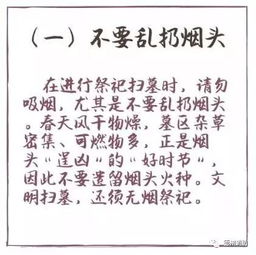 （一）不要乱扔烟头
在进行祭祀扫墓时，请勿
吸烟，尤其是不要乱扔烟头
。春天风干物燥，墓区杂草
密集、可燃物多，正是烟
头“逞凶”的“好时节”，
因此不要遗留烟头火种。文
明扫墓，还须无烟祭祀。